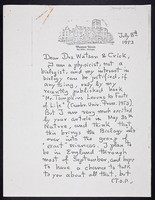 July 8th
1953
Dear Drs. Watson & Crick,
I am a physicist, not a
biologist, and my interest in
biology can be justified, if
any thing, only by my
recently published book
"Mr Tompkins Learns the Facts
of Life" (Cambr. Univ. Press, 1953).
But I am very much excited
by your article in May 30th
Nature, and think that
this brings the Biology
over into the group of
"exact" sciences. I plan to
be in England through
most of September, and hope
to have a chance to talk
to you about all that, but